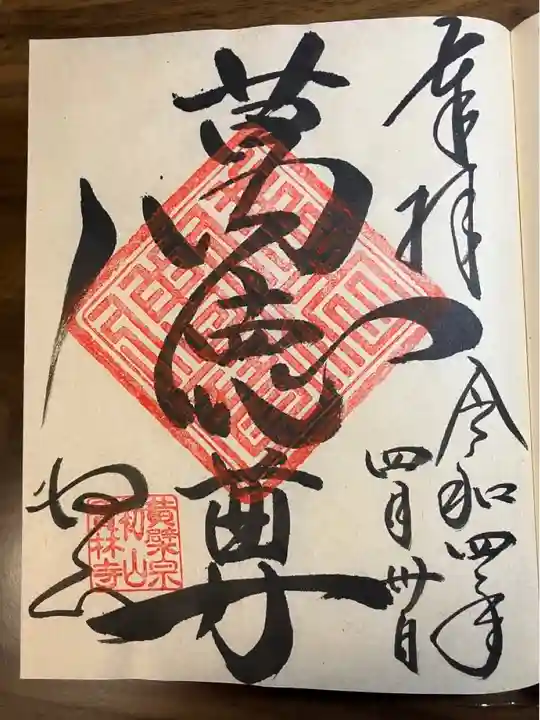 奉拝
令和四年
四月卅日
萬徳尊
黄檗宗
初山
寳林寺